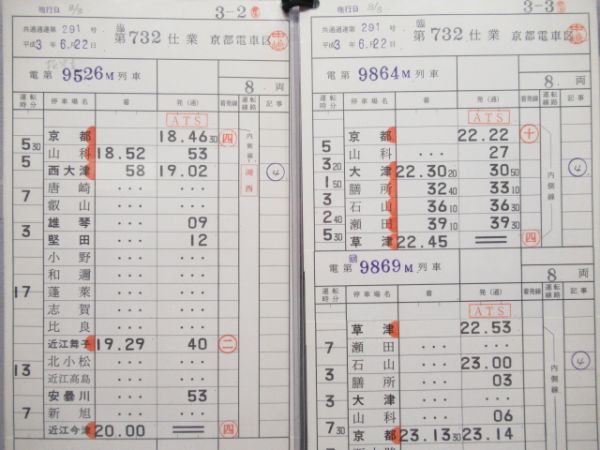 施行日 8/8
3-2
共通過達第 291 号
平成3年 6月22日
臨
第 732 仕業 京都電車区
電第 9526M 列車
8 両
運転時分 停車場名 着 発(通) 着発線 運転線路 記事
ATS
京都 18.46 30 四
内側線
5 30
山科 18.52 53
5
西大津 58 19.02 湖西 4
唐崎 ... ...
7
叡山 ... ...
雄琴 ... 09
3
堅田 ... 12
小野 ... ...
和邇 ... ...
17
蓬莱 ... ...
志賀 ... ...
比良 ... ...
近江舞子 19.29 40 二
北小松 ... ...
13
近江高島 ... ...
安曇川 ... 53
7
新旭 ... ...
近江今津 20.00 == 四
施行日 8/8
3-3
291 号
平成3年 6月22日
臨
第 732 仕業 京都電車区
電第 9864M 列車
8 両
運転時分 停車場名 着 発(通) 着発線 運転線路 記事
ATS
京都 22.22 十
5
山科 ... 27
3 20
大津 22.30 20 30 50 内側線 4
1 50
膳所 32 40 33 10
3
石山 36 10 36 30
2 40
瀬田 39 10 39 30
5 30
草津 22.45 == 四
回
電第 9869M 列車
8 両
運転時分 停車場名 着 発(通) 着発線 運転線路 記事
ATS
草津 22.53
7
瀬田 ... ...
石山 ... 23.00 4
3
膳所 ... 03 内側線
3
大津 ... ...
山科 ... 06
7 30
京都 23.13 30 23.14